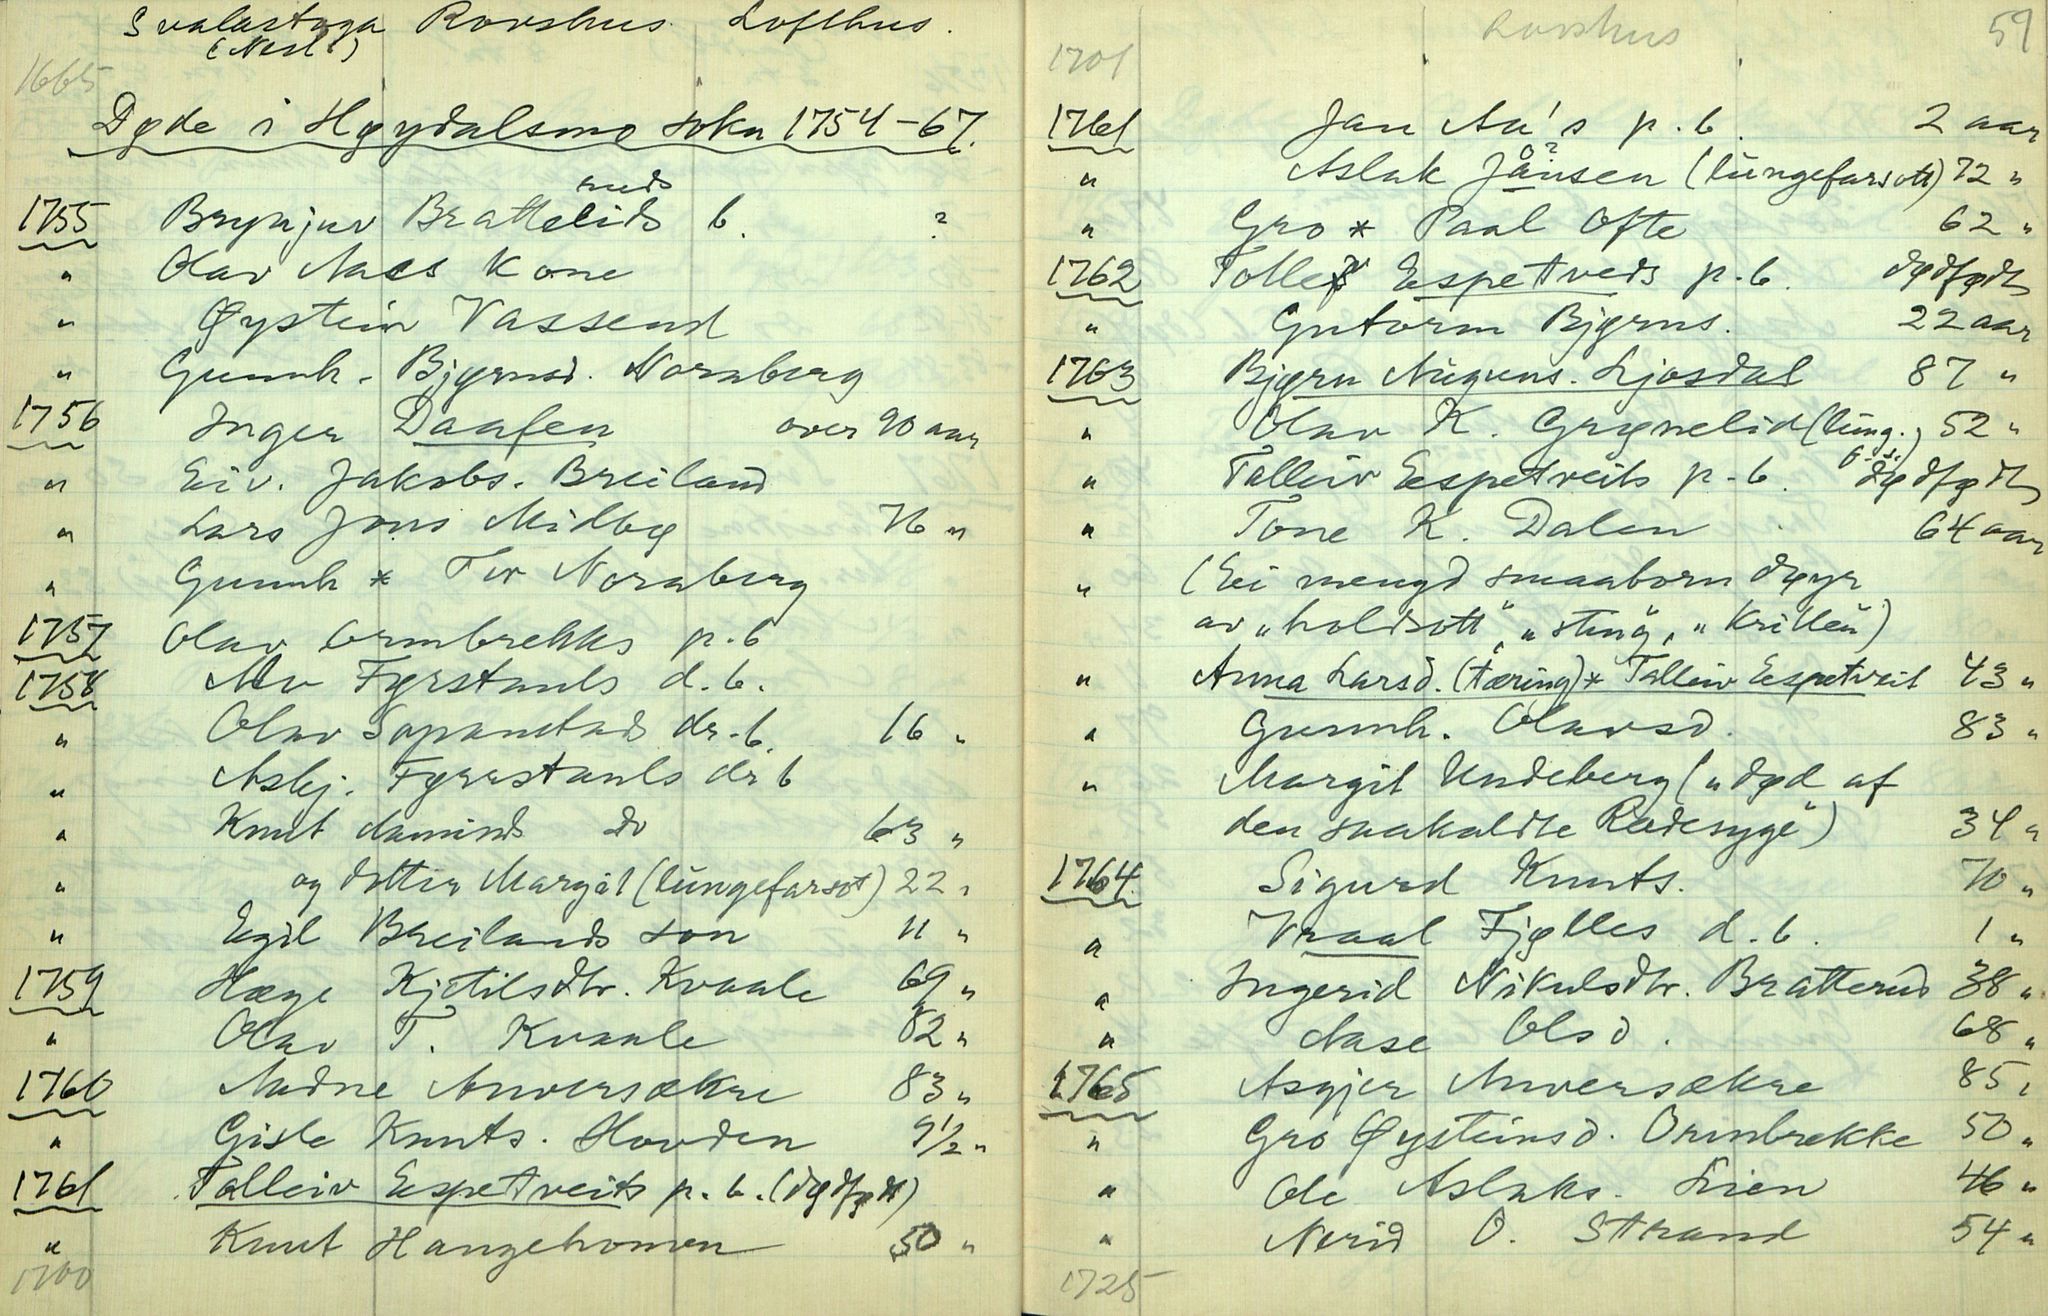 Svalastoga Rovshus Lofthus.
(Nesl )
1665
Døde i Høydalsmo sokn 1754-67.
ruds
1755 Brynjuv Brattelids b. ?
" Olav Naes Kone
" Øystein Vassend
" Gunnh. Bjørnsd. Nornberg
1756 Inger Daalen over 90 aar
" Eiv. Jakobs. Breiland
" Lars Jons Midbø 76 "
" Gunnh * Tov Nornberg
1757 Olav Ormbrekks p.b
1758 Alv Fyrstauls d.b.
" Olav Sopanstad dr.b. 16 "
" Asbj. Fyrrstauls dr b
" Knut Aamunds do 63 "
" og dotter Margit (lungefarsot) 22 "
" Egil Breilands son 11 "
1759 Hæge Kjetilsdtr. Kvaale 69 "
" Olav T. Kvaale 82 "
1760 Aadne Anversækre 83 "
" Gisle Knuts. Hovden 9 1/2 "
1761 Talleiv Espetveits p.b. (dødfødt)
" Knut Haugehomen 50 "
1700
Rovshus 59
1701
1761 Jan Aa's p.b. 2 aar
o?
" Aslak Jånsen (lungefarsott) 72 "
" Gro * Paal Ofte 62 "
1762 Tollef Espetveds p.b. dødfødt
" Gutorm Bjørns. 22 aar
1763 Bjørn Auguns. Ljosdal 87 "
" Olav K. Grønelid (lung.) 52 "
" Talleiv Espetveits p.b. dødfødt
" Tone K. Dalen 64 aar
" (Ei mengd smaaborn døyr
av "holdsott", "sting", "Krillen")
" Anna Larsd. (tæring) * Talleiv Espetveit 43 "
" Gunnh. Olavsd. 83 "
" Margit Undeberg ("død af
den saakaldte Radesyge") 34 "
1764 Sigurd Knuts. 70 "
" Vraal Fjølles d.b. 1 "
" Ingerid Nikulsdtr. Bratterud 38 "
" Aase Olsd. 68 "
1765 Asgjer Anversækre 85 "
" Gro Øysteinsd. Ormbrekke 50 "
" Ole Aslaks. Lien 46 "
" Nerid O. Strand 54 "
1725